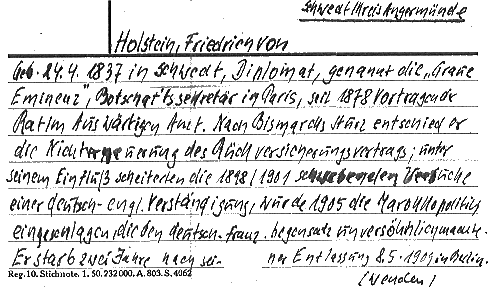 Schwedt Kreis Angermünde
Holstein, Friedrich von
Geb. 24.4. 1837 in Schwedt, Diplomat, genannt die "Graue
Eminenz", Botschaftssekretär in Paris, seit 1878 Vortragender
Rat im Auswärtigen Amt. Nach Bismarcks Sturz entschied er
die Nichterneuerung des Rückversicherungsvertrags; unter
seinem Einfluß scheiterten die 1898/1901 schwebenden Versuche
einer deutsch-engl. Verständigung, wurde 1905 die Marokkopolitik
eingeschlagen, die den deutsch-franz. Gegensatz unversöhnlich machte.
Er starb zwei Jahre nach sei- ner Entlassung 8.5.1909 in Berlin.
Reg. 10. Stichnote. 1. 50.232000. A. 803. S. 4062